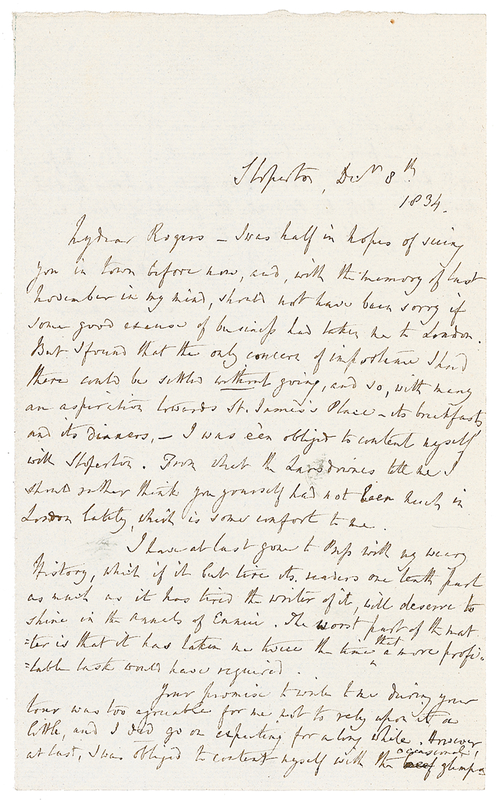 Sloperton, Decr 8th
1834.
My dear Rogers – I was half in hopes of seeing
you in town before now, and, with the memory of last
November in my mind, should not have been sorry if
some good excuse of business had taken me to London.
But I found that the only concern of importance I had
there could be settled without going, and so, with many
an aspiration towards St. James's Place – its breakfasts
and its dinners, – I was e'en obliged to content myself
with Sloperton. From what the Lansdownes tell me I
should rather think you yourself had not been much in
London lately, which is some comfort to me.
I have at last gone to Press with my weary
History, which if it but tire its readers one tenth part
as much as it has tired the writer of it, will deserve to
shine in the annals of Ennui. The worst part of the mat
=ter is that it has taken me twice the time that a more profi=
=table task would have required.
Your promise to write to me during your
tour was too agreeable for me not to rely upon it a
little, and I did go on expecting for a long while. However
at last, I was obliged to content myself with the occasional glimpse